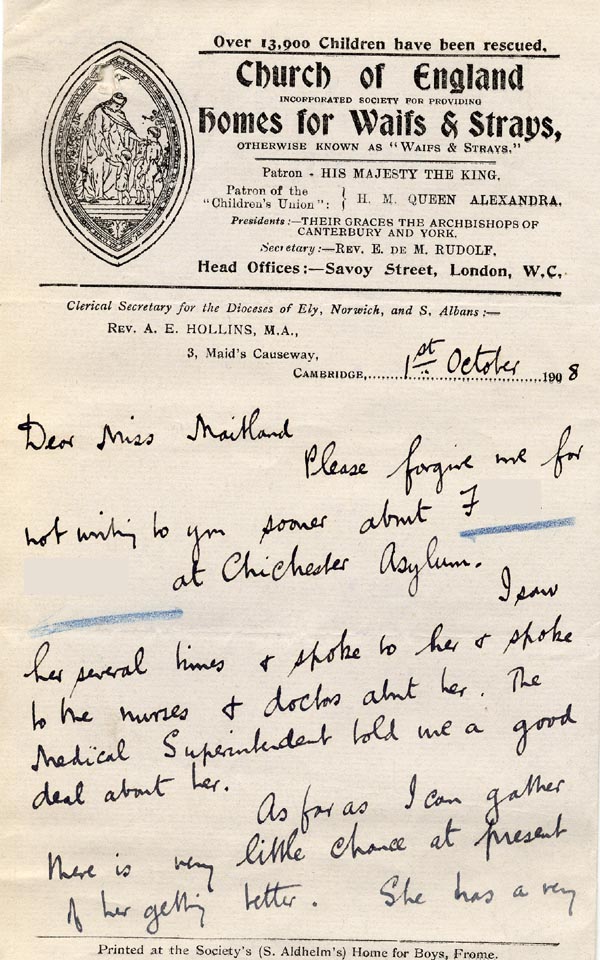 Over 13,900 Children have been rescued.
Church of England
INCORPORATED SOCIETY FOR PROVIDING
Homes for Waifs & Strays,
OTHERWISE KNOWN AS "WAIFS & STRAYS."
Patron - HIS MAJESTY THE KING.
Patron of the
"Children's Union": } H. M. QUEEN ALEXANDRA.
Presidents:—THEIR GRACES THE ARCHBISHOPS OF
CANTERBURY AND YORK.
Secretary:—REV. E. DE M. RUDOLF.
Head Offices:—Savoy Street, London, W.C.
Clerical Secretary for the Dioceses of Ely, Norwich, and S. Albans:—
REV. A. E. HOLLINS, M.A.,
3, Maid's Causeway,
CAMBRIDGE,..........1st October....1908
Dear Miss Maitland
Please forgive me for
not writing to you sooner about F
at Chichester Asylum.
I saw
her several times & spoke to her & spoke
to the nurses & doctors about her. The
Medical Superintendent told me a good
deal about her.
As far as I can gather
there is very little chance at present
of her getting better. She has a very
Printed at the Society's (S. Aldhelm's) Home for Boys, Frome.